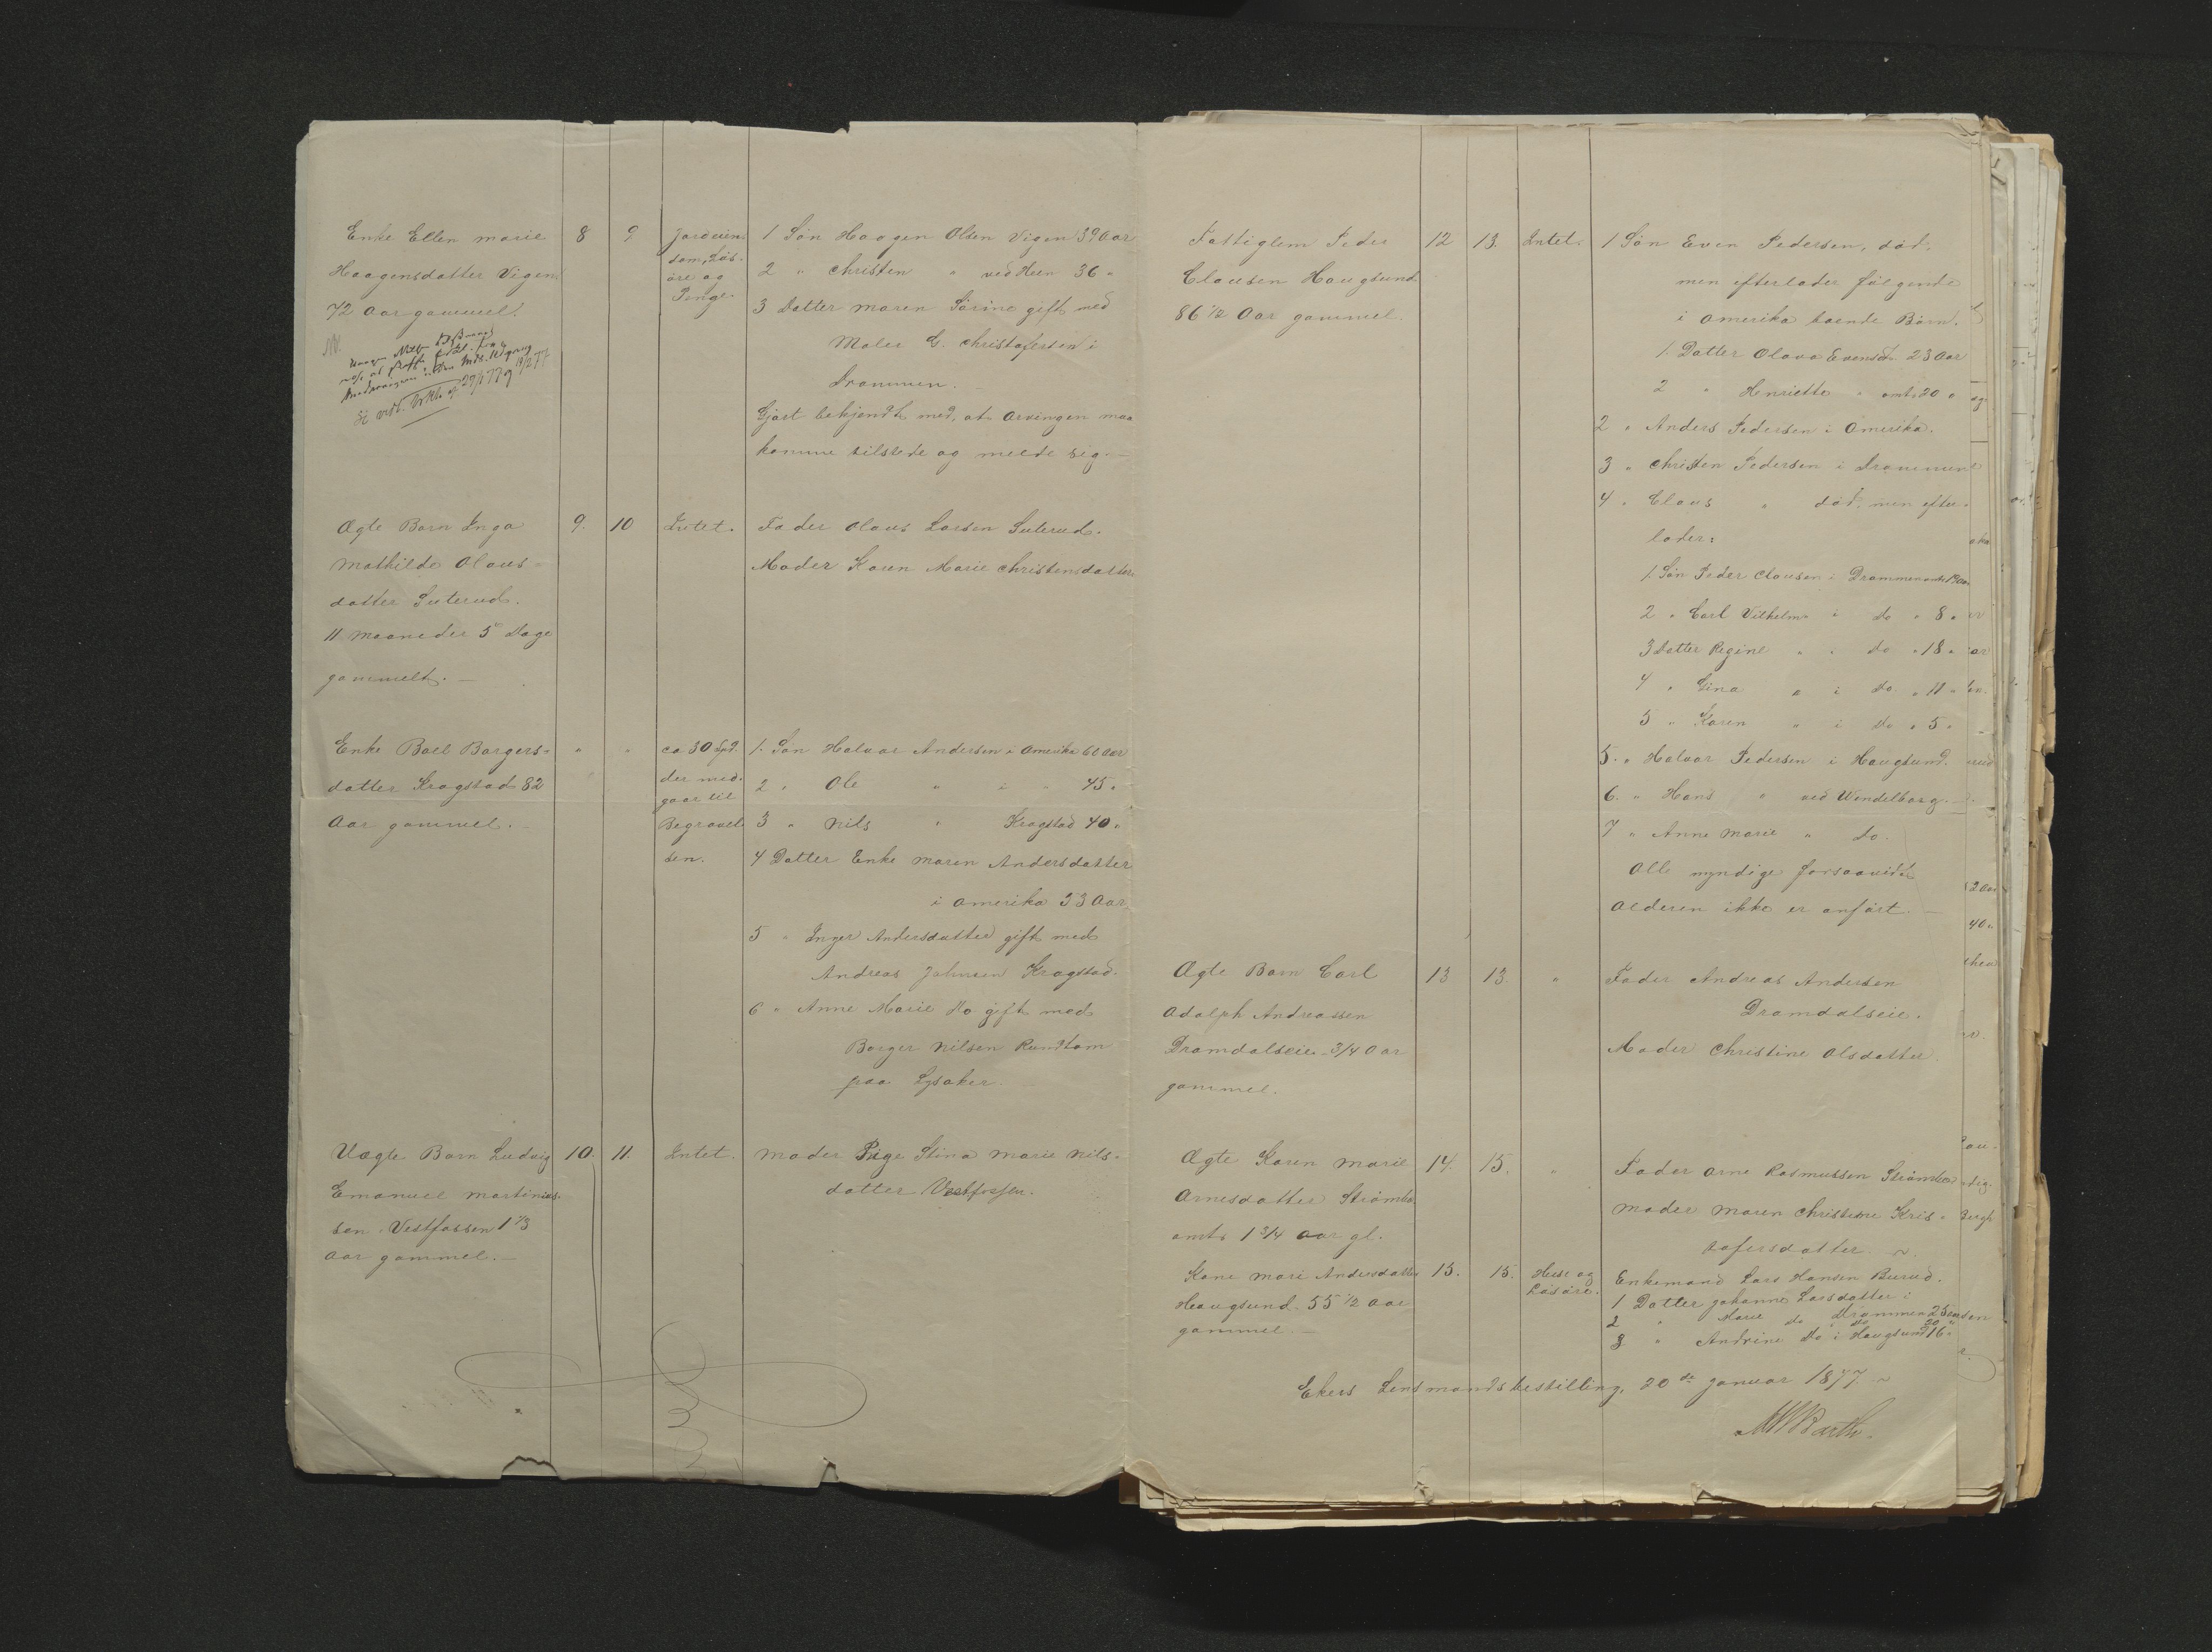 Enke Ellen Marie 8 9 Jordeien- 1 Søn Haagen Olsen Vigen 39 Aar
Haagensdatter Vigen dom, Løs- 2 " Christen " ved Heen 36 "
72 Aar gammel. øre og
Penge. 3 Datter Maren Sørine gift med
Maler C. Christofersen i
Drammen. -
Gjørt bekjendt med, at Arvingen maa
komme tilstede og melde sig. -
Ægte Barn Inga 9. 10 Intet. Fader Olaus Larsen Suterud.
Mathilde Olaus- Moder Karen Marie Christensdatter
datter Suterud.
11 Maaneder 5 Dage
gammelt. -
Enke Boel Borgers- " " ca 30 Spd. 1. Søn Halvor Andersen i Amerika 60 Aar
datter Kragstad 82 der med- 2 " Ole " i " 45 "
gaar til
Aar gammel. - Begravel- 3 " Nils " Kragstad 40 "
sen. 4 Datter Enke Maren Andersdatter
i Amerika 53 Aar
5 " Inger Andersdatter gift med
Andreas Johnsen Kragstad.
6 " Anne Marie Do gift med
Borger Nilsen Rundtom
paa Lysaker.
Uægte Barn Ludvig 10. 11. Intet. Moder Pige Stina Marie Nils-
Emanuel Martinius- datter Vestfossen.
sen Vestfossen 1 1/3
Aar gammel. -
Fattiglem Peder 12 13. Intet. 1 Søn Even Pedersen, død,
Clausen Haugsund men efterlader følgende
86 1/2 Aar gammel. i Amerika boende Børn.
1. Datter Olava Evensd. 23 Aar
2 " Henriette " omt. 20 "
2 " Anders Pedersen i Amerika.
3 " Christen Pedersen i Drammen
4 " Claus " død, men efter-
lader:
1. Søn Peder Clausen i Drammen
2 " Carl Vilhelm " i do " 8 "
3 Datter Regine " i do " 18 "
4 " Gina " i do " 11 "
5 " Karen " i do " 5 "
5. " Halvor Pedersen i Haugsund.
6. " Hans " ved Wendelborg.
7 " Anne Marie " do.
Alle myndige forsaavidt
Alderen ikke er anført. -
Ægte Barn Carl 13 13. " Fader Andreas Andersen
Adolph Andreassen Dramdalseie.
Dramdalseie 3/4 Aar Moder Christine Olsdatter
gammel.
Ægte Karen Marie 14. 15. " Fader Arne Rasmussen Strømbo
Arnesdatter Strømbo Moder Maren Christine Kris-
omt. 1 3/4 Aar gl. tofersdatter
Kone Mari Andersdatter 15. 15. Huse og Enkemand Lars Hansen Burud.
Haugsund 55 1/2 Aar Løsøre. 1 Datter Johanne Larsdatter i
Drammen 25 Aar
gammel. - 2 " Marie do " do 20 "
3 " Andrine do i Haugsund 16 "
Ekers Lensmandsbestilling, 20de Januar 1877.
MWBarth.